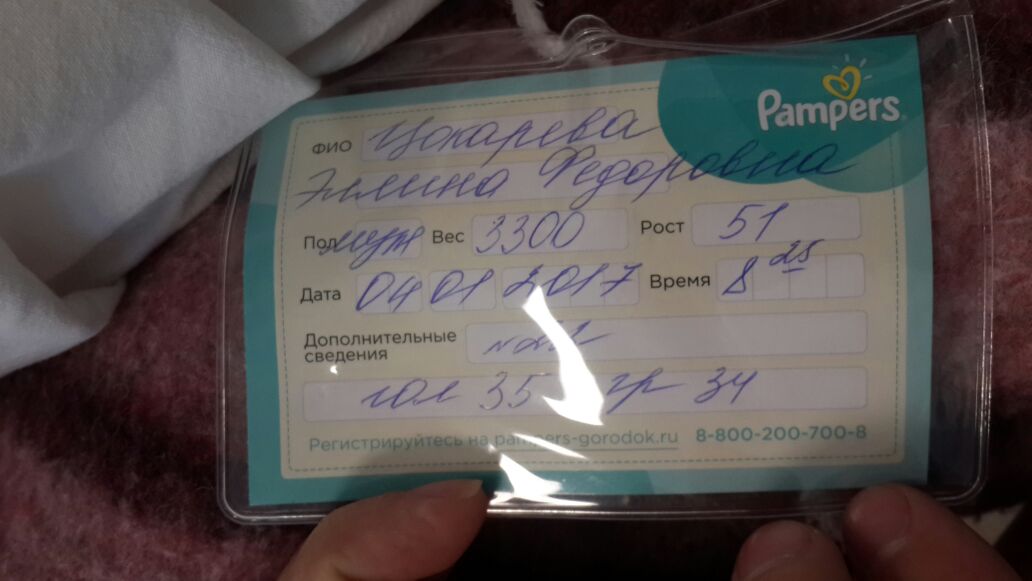 Pampers
ФИО Цокарева
Эллина Федоровна
Пол муж Вес 3300 Рост 51
Дата 04 01 2017 Время 8 25
Дополнительные
сведения
гол 35 гр 34
Регистрируйтесь на pampers-gorodok.ru 8-800-200-700-8